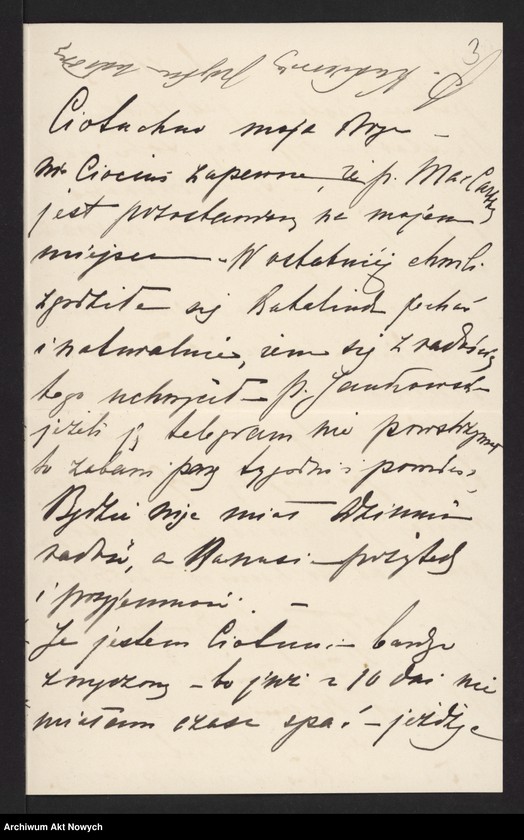 3
Ciotuchno moja droga –
wie Ciocia zapewne, że p. Mac Carthy
jest pozostawiony na mojem
miejscu – W ostatniej chwili
zgodziła się Natalinka jechać
i naturalnie, żem się z radością
tego uchwycił – p. Jankowska
jeżeli ją telegram nie powstrzyma
to zabawi parę tygodni i
Będzie miał
radość, a – pożytek
i przyjemność. –
Ja jestem Ciotuniu – bardzo
zmęczony – bo już z 10 dni nie
miałem czasu spać – jeżdżę
Archiwum Akt Nowych